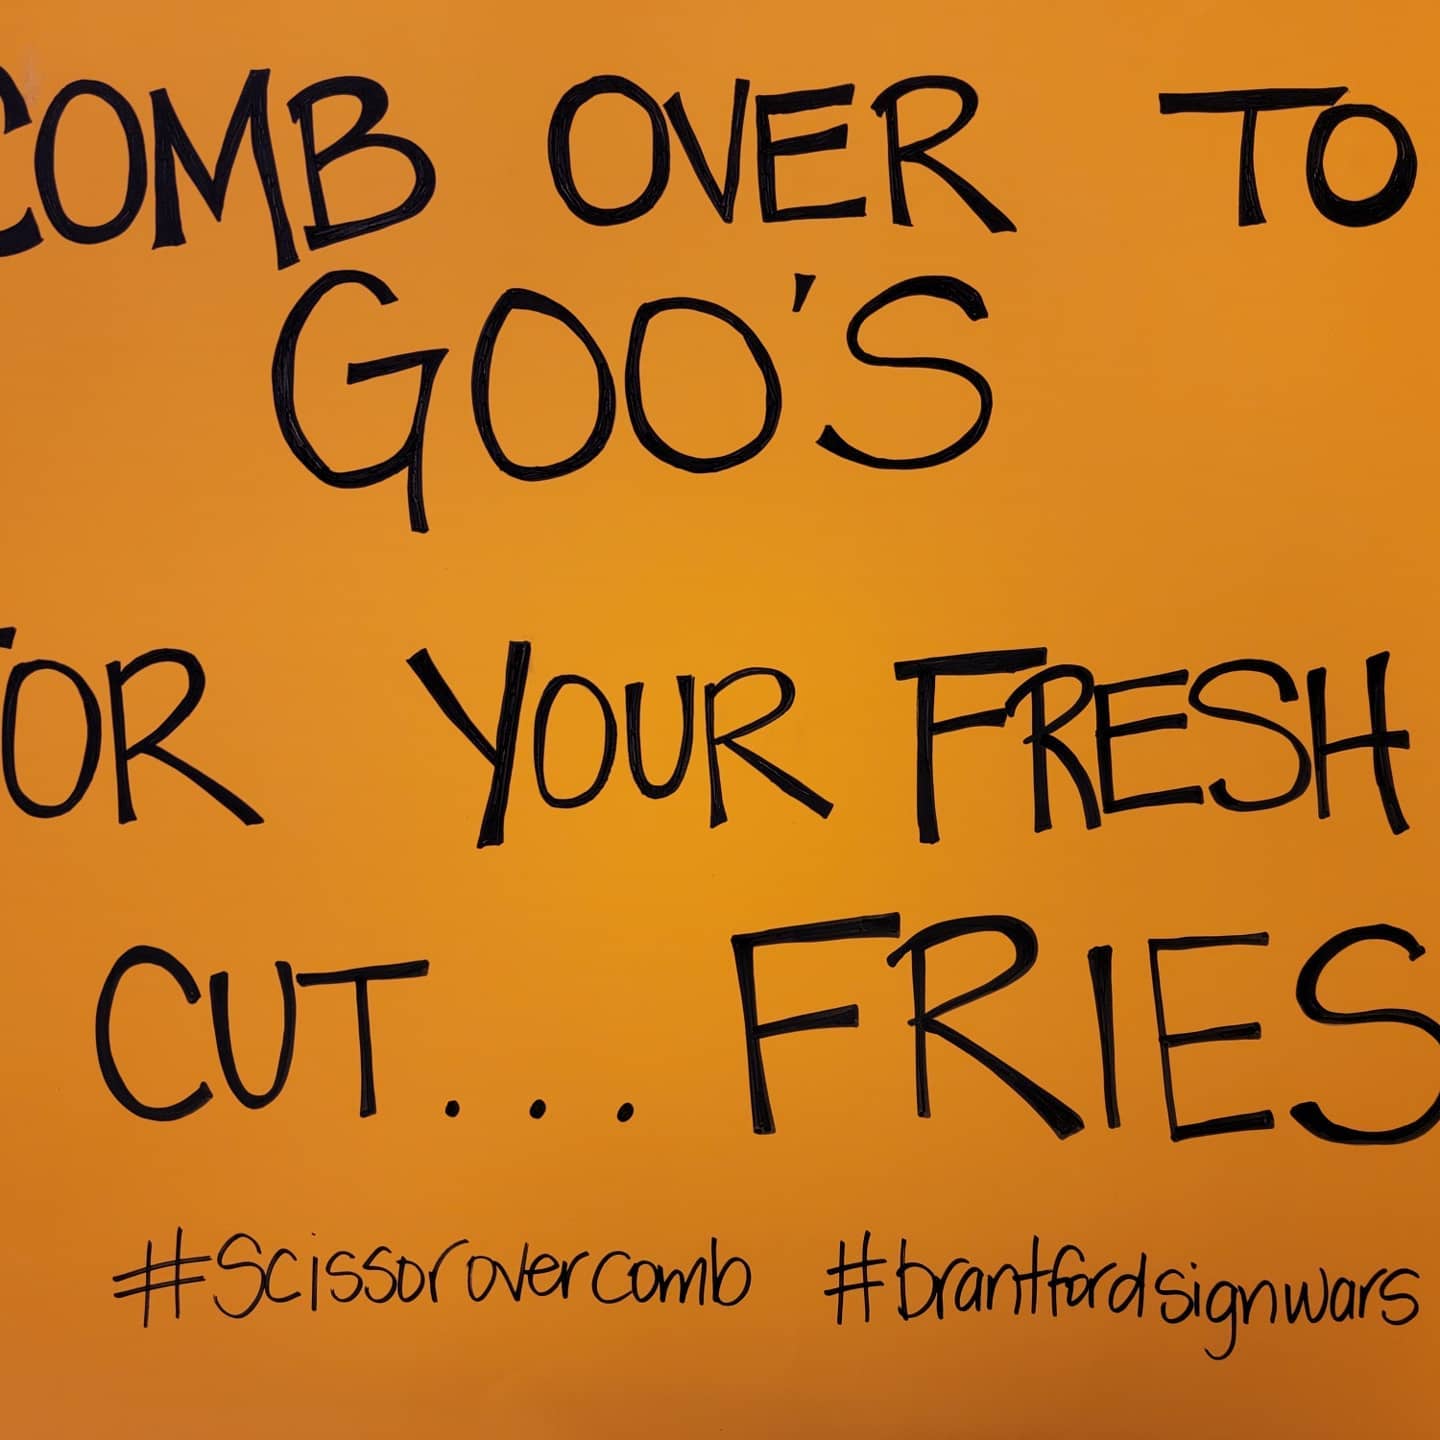 COMB OVER TO
GOO'S
FOR YOUR FRESH
CUT... FRIES
#Scissorovercomb #brantfordsignwars